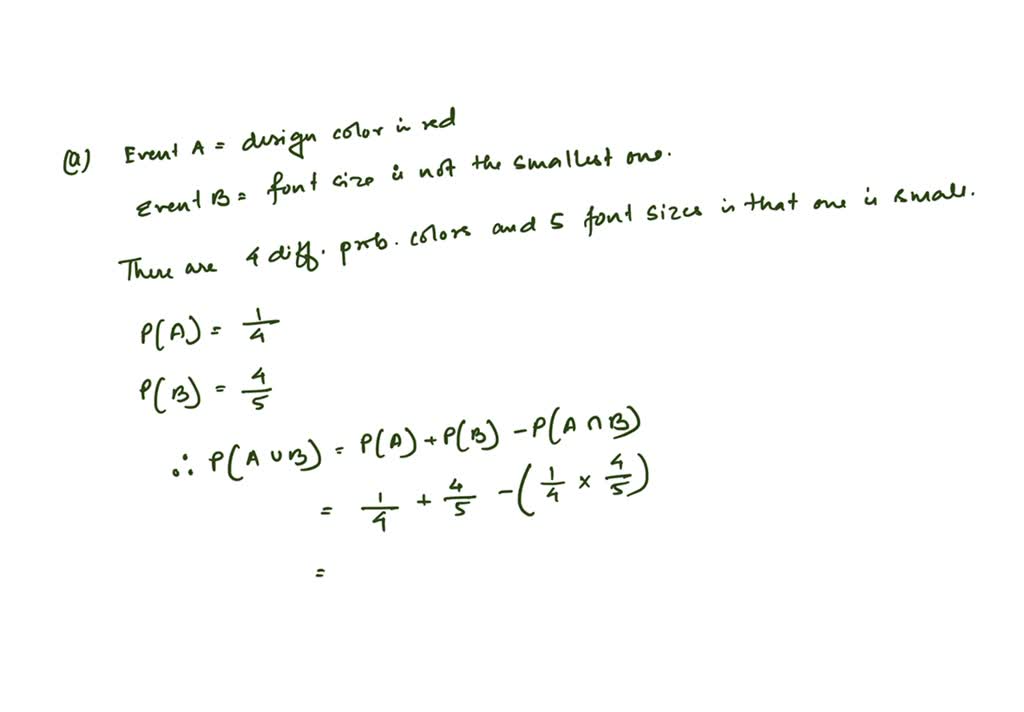 (a) Event A = design color is red
Event B = font size is not the smallest one.
There are 4 diff. prob. colors and 5 font sizes in that one is small.
P(A) = 1/4
P(B) = 4/5
∴ P(A ∪ B) = P(A) + P(B) - P(A ∩ B)
= 1/4 + 4/5 - (1/4 × 4/5)
=